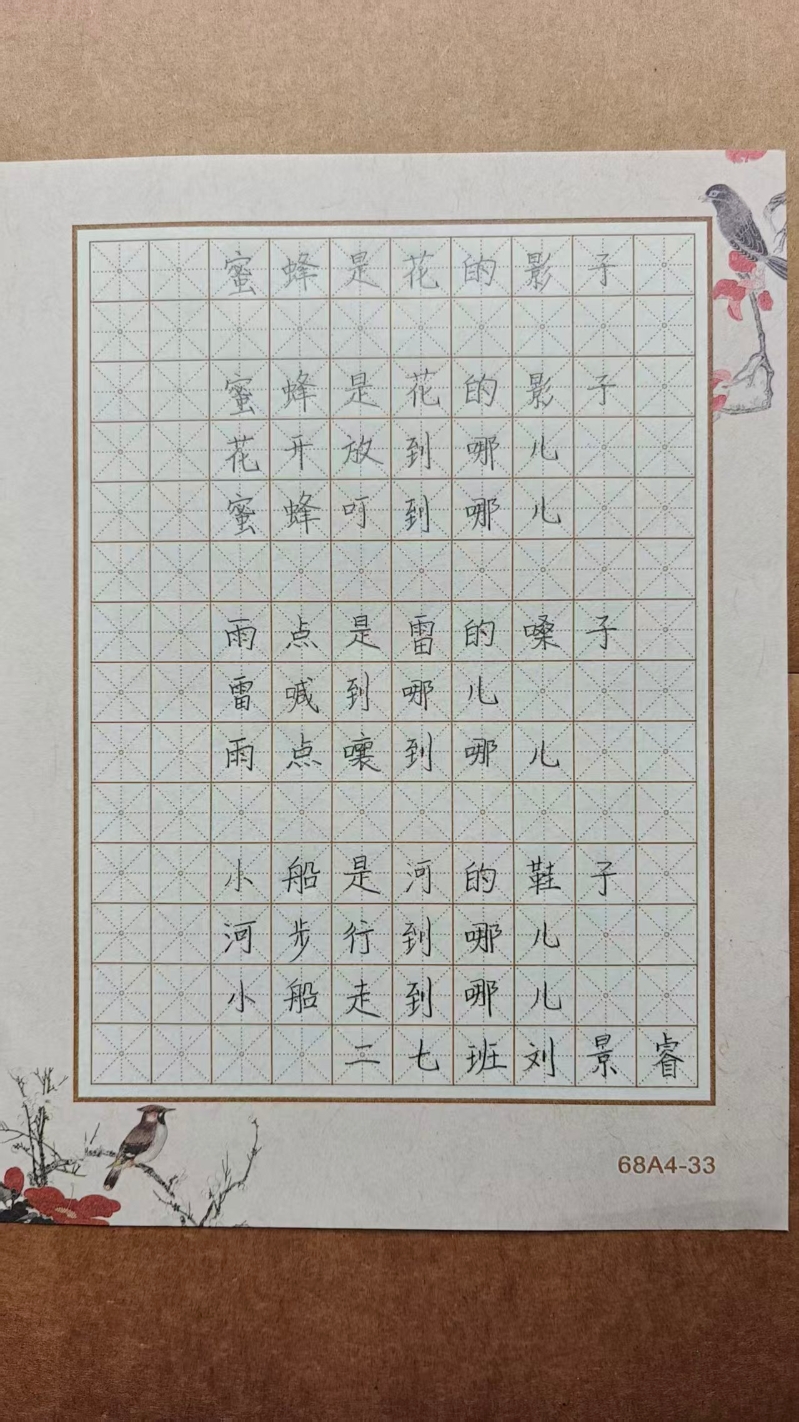 蜜蜂是花的影子
蜜蜂是花的影子
花开放到哪儿
蜜蜂呵到哪儿
雨点是雷的嗓子
雷喊到哪儿
雨点嚷到哪儿
小船是河的鞋子
河步行到哪儿
小船走到哪儿
二七班刘景睿
68A4-33